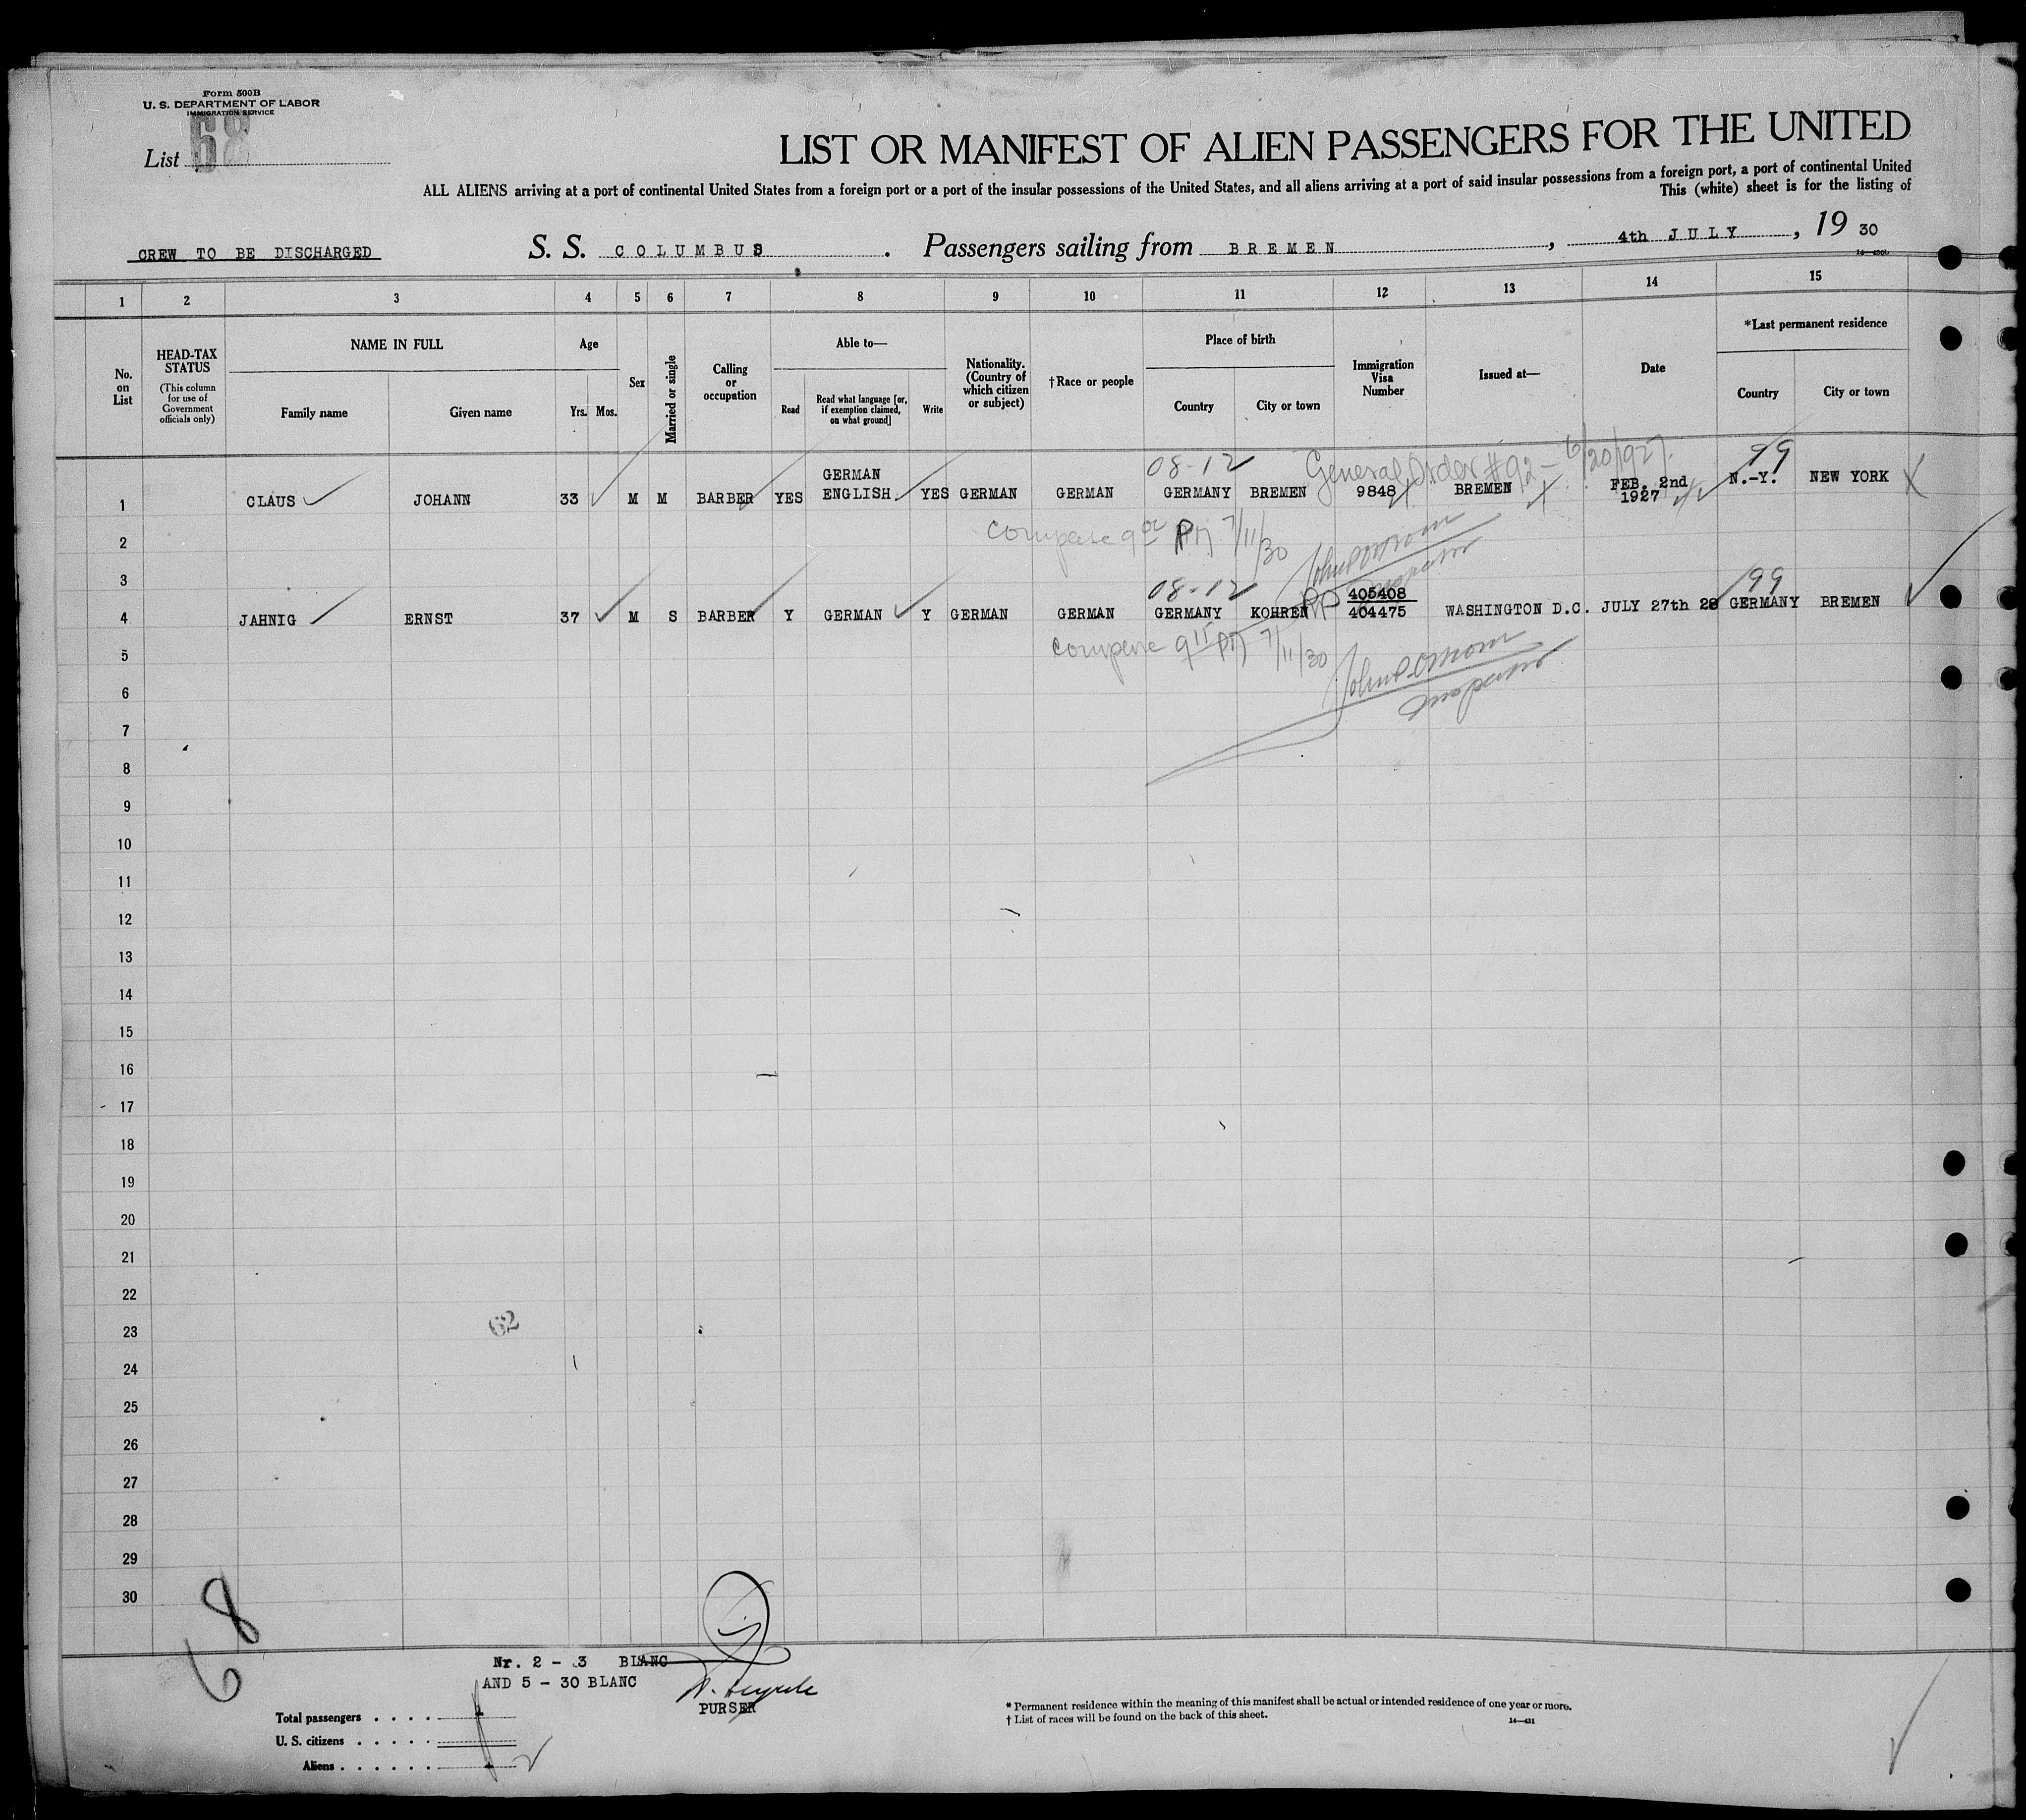 Form 500B
U. S. DEPARTMENT OF LABOR
IMMIGRATION SERVICE
List 68
LIST OR MANIFEST OF ALIEN PASSENGERS FOR THE UNITED
ALL ALIENS arriving at a port of continental United States from a foreign port or a port of the insular possessions of the United States, and all aliens arriving at a port of said insular possessions from a foreign port, a port of continental United
This (white) sheet is for the listing of
CREW TO BE DISCHARGED S. S. COLUMBUS . Passengers sailing from BREMEN , 4th JULY , 19 30
1 2 3 4 5 6 7 8 9 10 11 12 13 14 15
No. on List
HEAD-TAX STATUS
(This column for use of Government officials only)
NAME IN FULL
Family name Given name
Age
Yrs. Mos.
Sex
Married or single
Calling or occupation
Able to—
Read
Read what language [or, if exemption claimed, on what ground]
Write
Nationality. (Country of which citizen or subject)
†Race or people
Place of birth
Country City or town
Immigration Visa Number
Issued at—
Date
*Last permanent residence
Country City or town
08-12 General Order #92 - 6/20/1927. 99
1 CLAUS JOHANN 33 M M BARBER YES GERMAN ENGLISH YES GERMAN GERMAN GERMANY BREMEN 9848 BREMEN FEB. 2nd 1927 N.-Y. NEW YORK
7/11/30
2
3
08-12 RP 405408 99
4 JAHNIG ERNST 37 M S BARBER Y GERMAN Y GERMAN GERMAN GERMANY KOHREN 404475 WASHINGTON D.C. JULY 27th 28 GERMANY BREMEN
7/11/30
5
6
7
8
9
10
11
12
13
14
15
16
17
18
19
20
21
22
62
23
24
25
26
27
28
29
30
68
Nr. 2 - 3 BLANC
AND 5 - 30 BLANC
PURSER
Total passengers
U. S. citizens
Aliens
* Permanent residence within the meaning of this manifest shall be actual or intended residence of one year or more.
† List of races will be found on the back of this sheet.
14—431